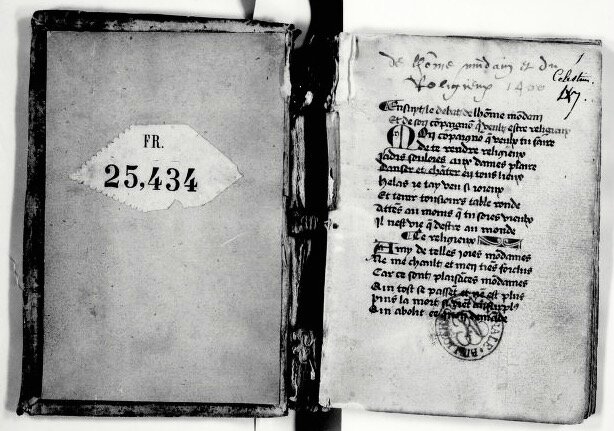 FR.
25,434
de lhôme mondain et du
Religieux 1400
Celestins.
Ensuyt le debat de lhôme môdain
Et de son côpaignô q̃ veult estre religieux
Mon côpaignô q̃ veulx tu faire
De te rendre religieux
Jadis souloies aux dames plaire
Danser et châter en tous lieux
Helas ie tay veu si ioieux
Et tenir tousiours table ronde
Attês au moins q̃ tu soies vieulx
Il nest vie q̃ destre au monde
Le religieux
Amy de telles ioies môdaines
Ne me chault et men tiês forclus
Car ce sont plaisâces môdaines
Qui tost se passêt et nê est plus
Puis la mort
Qui abolit